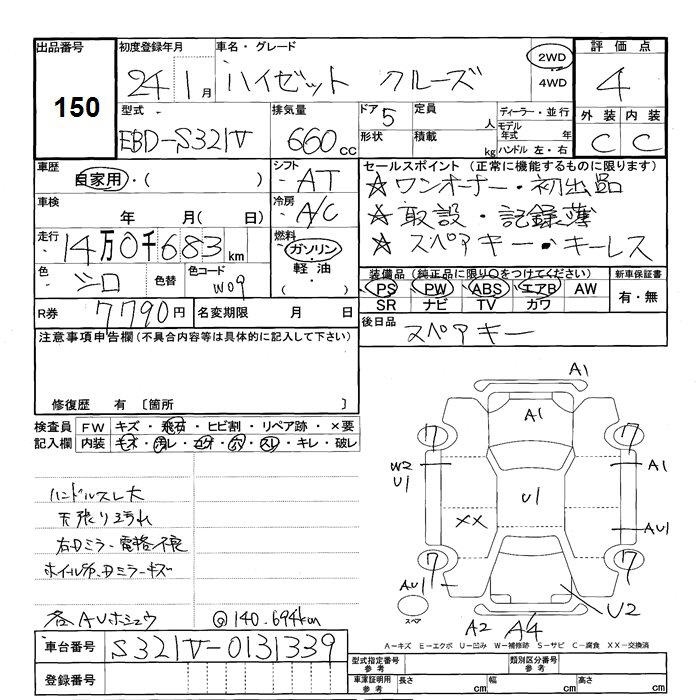 出品番号
150
初度登録年月
24 1月
車名・グレード
ハイゼット クルーズ
2WD
4WD
評価点
4
型式
EBD-S321V
排気量
660cc
ドア 5
形状
定員 人
積載 kg
ディーラー・並行
モデル年式 年
ハンドル 左・右
外装 内装
C C
車歴
自家用・( )
シフト
AT
車検
年 月( 日)
冷房
A/C
走行
14万0千683km
燃料
ガソリン
軽油・
( )
色
シロ
色替
色コード
W09
セールスポイント(正常に機能するものに限ります)
☆ワンオーナー・初出品
☆取説・記録簿
☆スペアキー・キーレス
装備品(純正品に限り○をつけてください)
PS PW ABS エアB AW
SR ナビ TV カワ
新車保証書
有・無
R券
7790円
名変期限 月 日
後日品
スペアキー
注意事項申告欄(不具合内容等は具体的に記入して下さい)
修復歴 有 〔箇所 〕
検査員記入欄
FW キズ・飛石・ヒビ割・リペア跡・×要
内装 コゲ・穴・スレ・キレ・破レ
ハンドルスレ大
天張り汚れ
右Dミラー電格不良
ホイルキズ,Dミラーキズ
各AUホシュウ
◎140.694km
A1
A1
7
7
W2
U1
A1
U1
XX
AU1
7
7
AU1
スペア
U2
A2
A4
車台番号
S321V-0131339
登録番号
A-キズ E-エクボ U-凹み W-補修跡 S-サビ C-腐食 XX-交換済
型式指定番号
参考
類別区分番号
参考
車庫証明用
参考
長さ cm
幅 cm
高さ cm